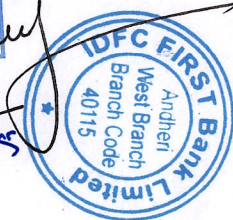 IDFC FIRST Bank Limited
Andheri
West Branch
Branch Code
40115